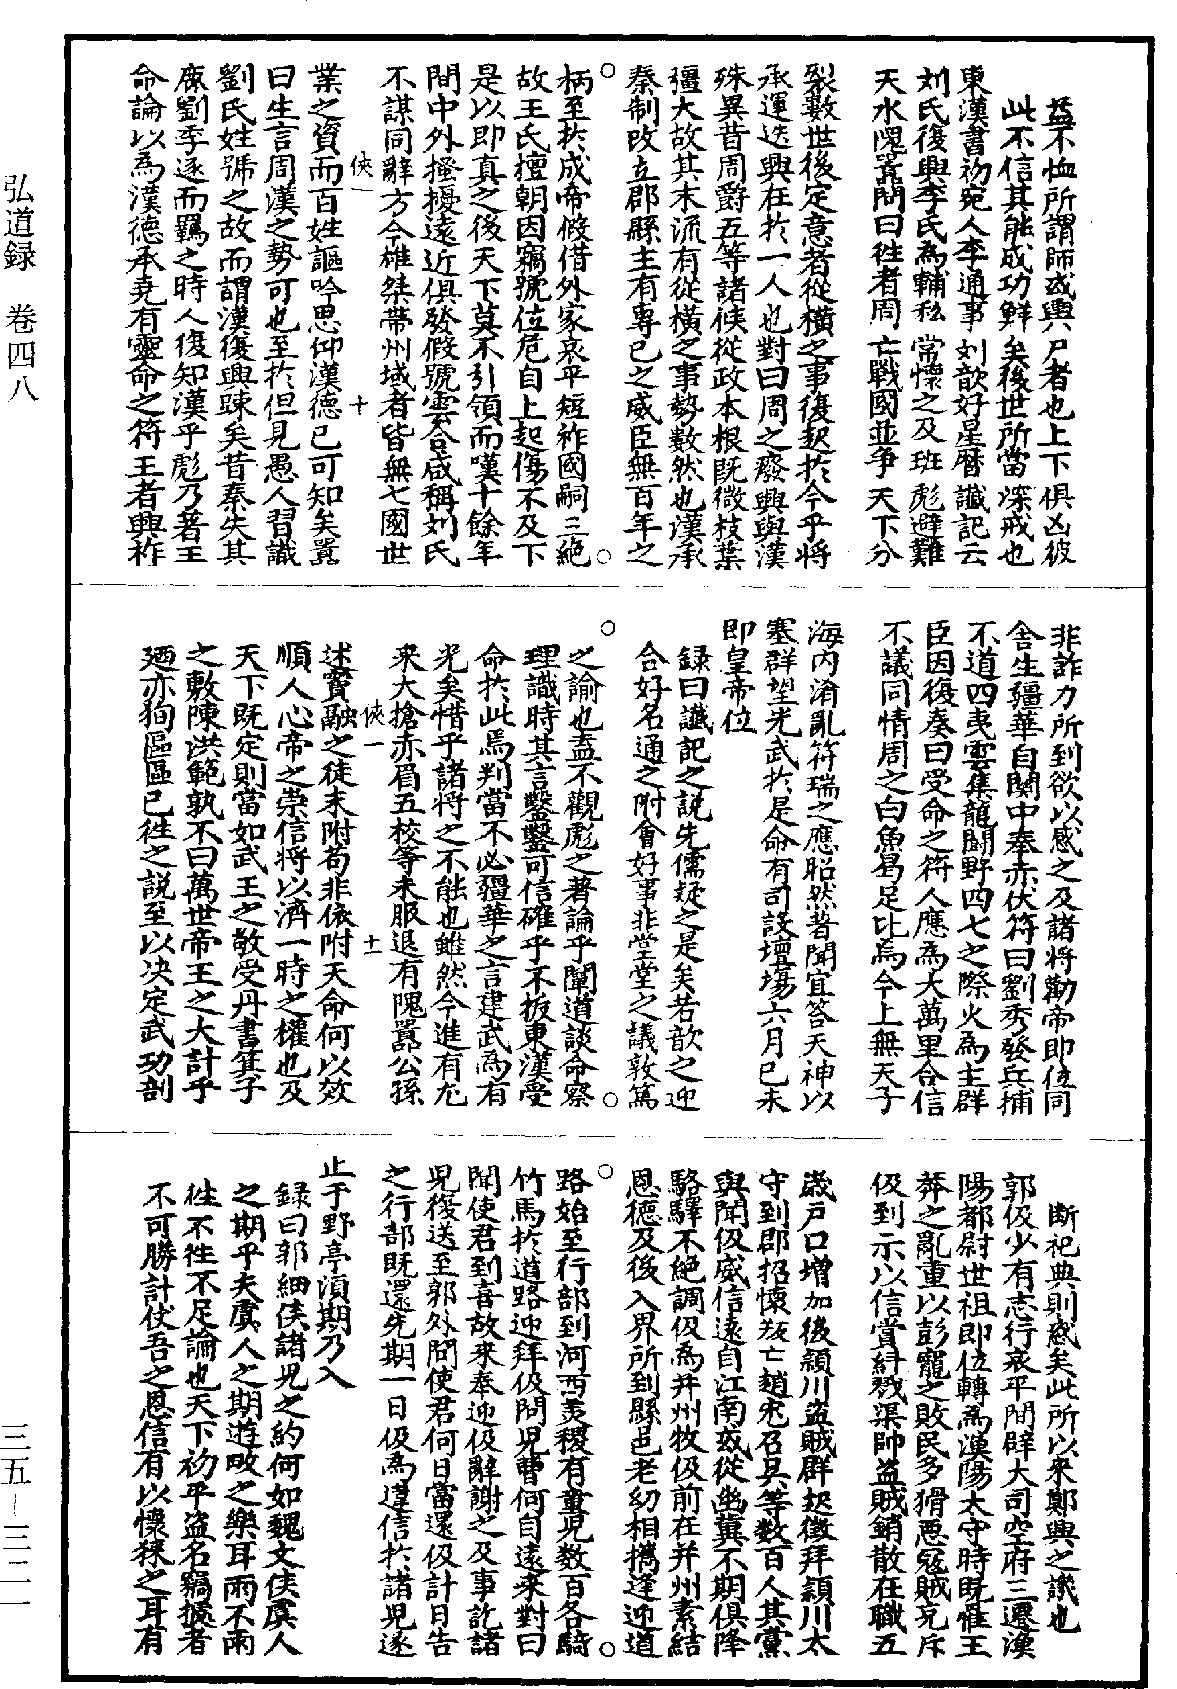 弘道録　卷四八
三五—三二一
益不恤所謂師或輿尸者也上下俱凶彼
此不信其能成功鮮矣後世所當深戒也
東漢書初宛人李通事刘歆好星曆讖記云
刘氏復興李氏為輔私常懷之及班彪避難
天水隗囂問曰往者周亡戰國並争天下分
裂數世後定意者從橫之事復起於今乎將
承運迭興在於一人也對曰周之廢興與漢
殊異昔周爵五等諸侯從政本根既微枝葉
彊大故其末流有從橫之事勢數然也漢承
秦制改立郡縣主有專已之威臣無百年之
柄至於成帝假借外家哀平短祚國嗣三絕
故王氏擅朝因竊號位危自上起傷不及下
是以即真之後天下莫不引領而嘆十餘年
間中外搔擾遠近俱發假號雲合咸稱刘氏
不謀同辭方今雄桀帶州域者皆無七國世
俠一　十
業之資而百姓謳吟思仰漢德已可知矣囂
曰生言周漢之勢可也至於但見愚人習識
劉氏姓號之故而謂漢復興踈矣昔秦失其
鹿劉季逐而羈之時人復知漢乎彪乃著王
命論以為漢德承堯有靈命之符王者興祚
非詐力所到欲以感之及諸將勸帝即位同
舍生彊華自關中奉赤伏符曰劉秀發兵捕
不道四夷雲集龍鬭野四七之際火為主群
臣因復奏曰受命之符人應為大萬里合信
不議同情周之白魚曷足比焉今上無天子
海內淆亂符瑞之應昭然著聞宜答天神以
塞群望光武於是命有司設壇場六月已未
即皇帝位
録曰讖記之説先儒疑之是矣若歆之迎
合好名通之附會好事非堂堂之議敦篤
之諭也盍不觀彪之著論乎闡道談命察
理識時其言鑿鑿可信確乎不扳東漢受
命於此焉判當不必彊華之言建武為有
光矣惜乎諸將之不能也雖然今進有尤
来大搶赤眉五校等未服退有隗囂公孫
俠一　十一
述竇融之徒未附苟非依附天命何以效
順人心帝之崇信將以濟一時之權也及
天下既定則當如武王之敬受丹書箕子
之敷陳洪範孰不曰萬世帝王之大計乎
廼亦狥區區已往之説至以决定武功剖
断祀典則惑矣此所以来鄭興之譏也
郭伋少有志行哀平間辟大司空府三遷漁
陽都尉世祖即位轉為漢陽太守時既罹王
莽之亂重以彭寵之敗民多猾惡寇賊充斥
伋到示以信賞紏戮渠帥盗賊銷散在職五
歲戶口增加後頴川盗賊群起徵拜頴川太
守到郡招懷叛亡趙宏召吳等数百人其黨
與聞伋威信遠自江南或從幽冀不期俱降
駱驛不絕調伋為并州牧伋前在并州素結
恩德及後入界所到縣邑老幼相攜逢迎道
路始至行部到河西美稷有童児数百各騎
竹馬於道路迎拜伋問児曹何自遠来對曰
聞使君到喜故来奉迎伋辭謝之及事訖諸
児復送至郭外問使君何日當還伋計日告
之行部既還先期一日伋為違信於諸児遂
止于野亭湏期乃入
録曰郭細侯諸児之約何如魏文侯虞人
之期乎夫虞人之期遊畋之樂耳雨不雨
往不往不足論也天下初平盗名竊據者
不可勝計仗吾之恩信有以懷狹之耳有